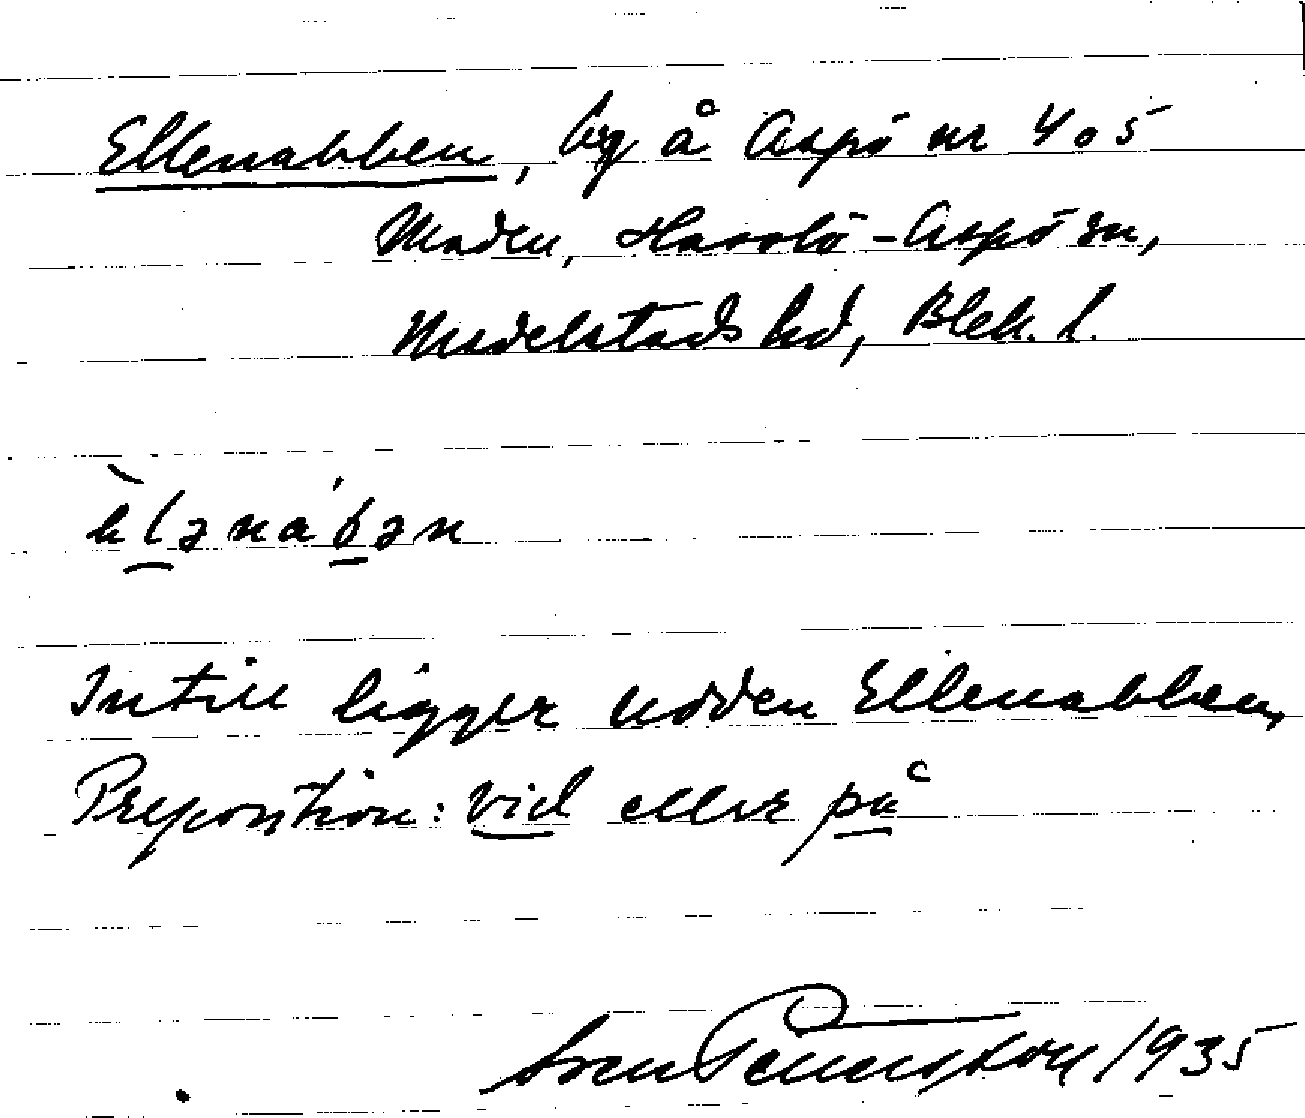 Ellenabben, bg å Aspö nr 4 o 5
Maden, Hasslö-Aspö sn,
Medelstads hd, Blek. l.
Intill ligger udden Ellenabben,
Preposition: vid eller på
Sven Benson 1935